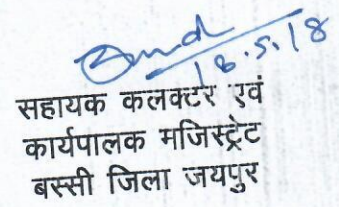 18.5.18
सहायक कलक्टर एवं
कार्यपालक मजिस्ट्रेट
बस्सी जिला जयपुर